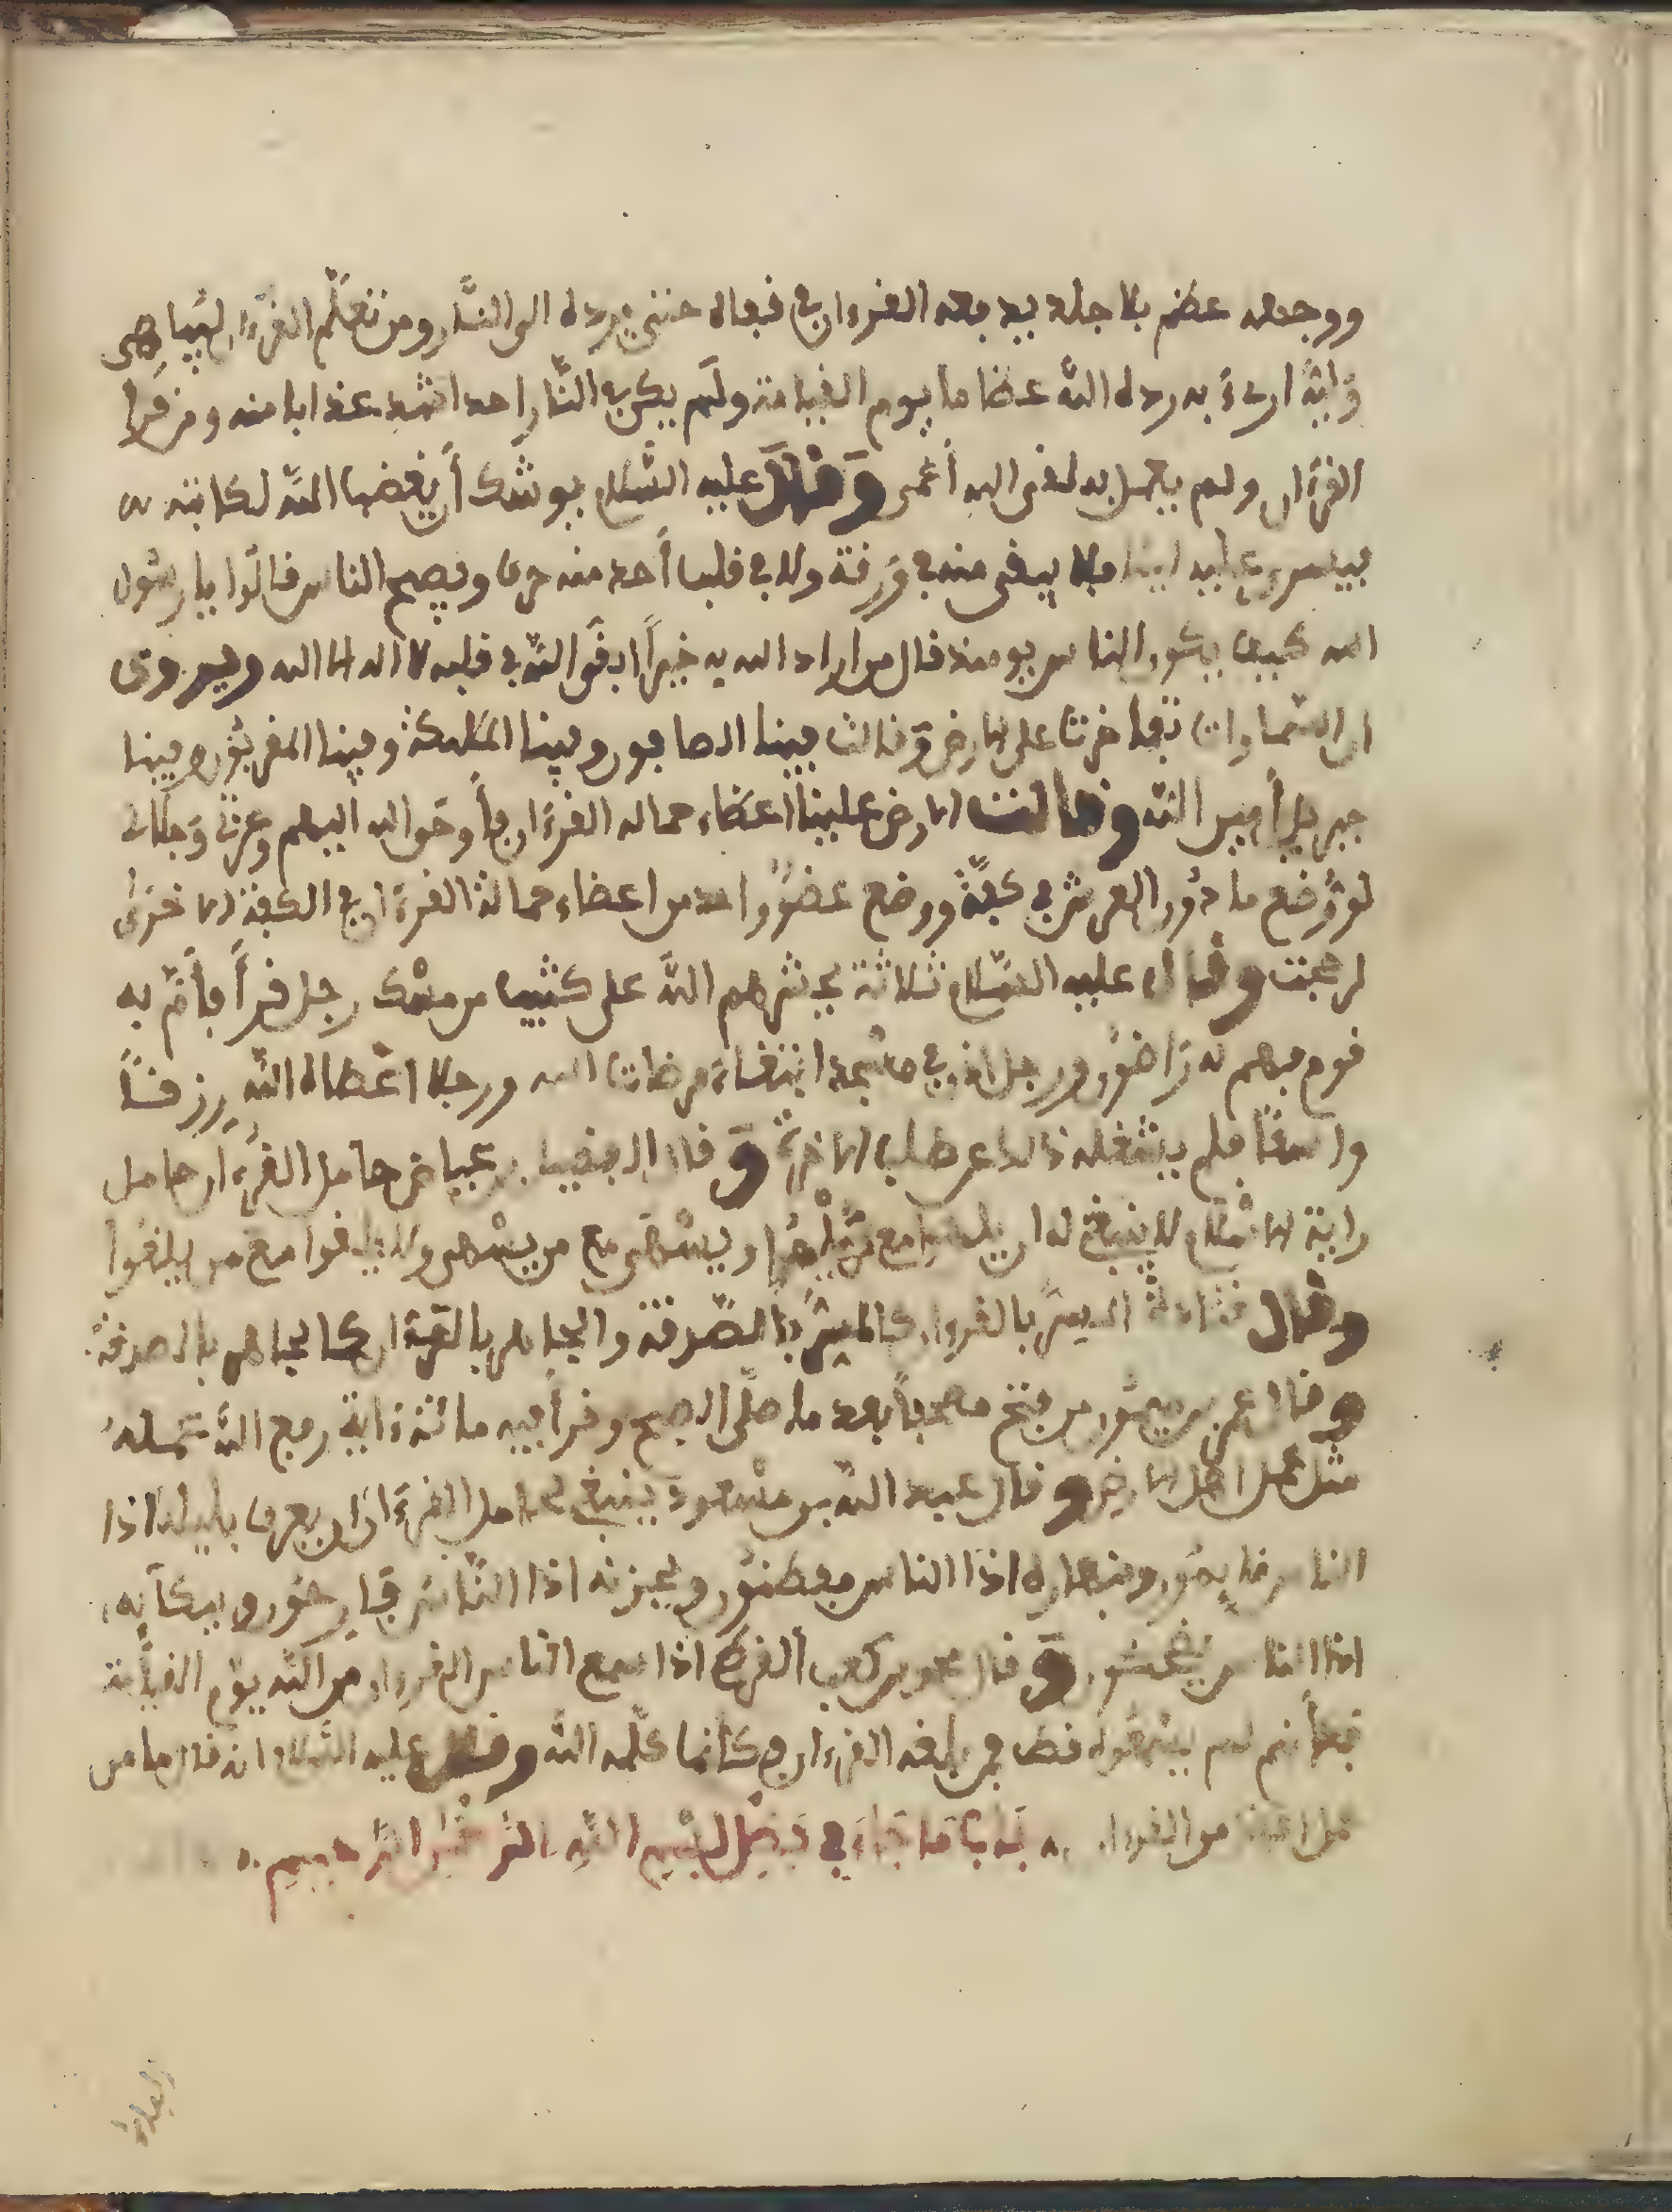 ووجهه عظم بلا جلد يدفعه القرءان في قفاه حتى يرده الى النار ومن تعلم القرءان ليباهي
به رده الله عظاما يوم القيامة ولم يكن في النار احد اشد عذابا منه ومن قرا
القرءان ولم يعمل به لقي الله أعمى وقال عليه السلام يوشك أن يغضب الله لكتابه
فيسرى عليه ليلا فلا يبقى منه في ورقة ولا في قلب أحد منه حرف ويصبح الناس قالوا يا رسول
الله كيف يكون الناس يومئذ قال من اراد الله به خيراً ابقى الله في قلبه لا اله الا الله ويروى
ان السماوات تفاخرت على الارض وقالت فينا الصافون وفينا الملئكة وفينا المقربون وفينا
جبريل أمين الله وقالت الارض علينا اعضاء حمالة القرءان فأوحى الله اليهم وعزتي وجلالي
لو وضع ما دون العرش في كفة ووضع عضو واحد من اعضاء حمالة القرءان في الكفة الاخرى
لرجحت وقال عليه السلام ثلاثة يحشرهم الله على كثيب من مسك رجل قرأ فأم به
قوم فهم به راضون ورجل اذن في مسجد ابتغاء مرضات الله ورجلا اعطاه الله رزقاً
واسعاً فلم يشغله ذالك عن طلب الاخرة وقال الفضيل بن عياض حامل القرءان حامل
راية الاسلام لا ينبغي له ان يلهوا مع من يلهوا ويسهى مع من يسهى ولا يلغوا مع من يلغوا
وقال قتادة المسر بالقرءان كالمسر بالصدقة والجاهر بالقرءان كالجاهر بالصدقة
وقال عمر بن ميمون من فتح مصحفاً بعد ما صلى الصبح وقرأ فيه مائة ءاية رفع الله عمله
مثل عمل اهل الارض وقال عبد الله بن مسعود ينبغي لحامل القرءان ان يعرف بليله اذا
الناس نايمون وبنهاره اذا الناس مفطرون وبحزنه اذا الناس فارحون وببكايه
اذا الناس يضحكون وقال محمد بن كعب القرظي اذا سمع الناس القرءان من الله يوم القيامة
فكأنهم لم يسمعوه قط فمن بلغه القرءان فكأنما كلمه الله وقال عليه السلام انه قال ما من
من القرءان باب ما جاء في فضل بسم الله الرحمن الرحيم